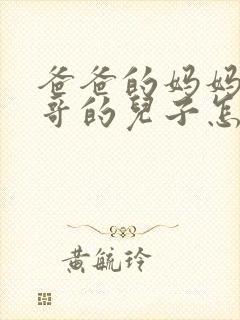 爸爸的妈妈
哥的兒子怎
黃毓玲